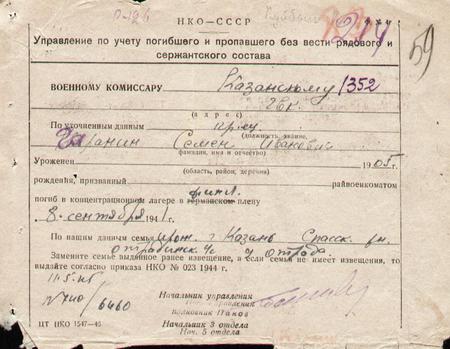 НКО—СССР
214
59
Управление по учету погибшего и пропавшего без вести рядового и
сержантского состава
ВОЕННОМУ КОМИССАРУ Казанскому 1352
(адрес)
По уточненным данным
(должность, звание,
Гаранин Семен Иванович
фамилия, имя и отчество)
Уроженец 1905 г.
(область, район, деревня)
рождения, призванный райвоенкоматом
погиб в концентрационном лагере в германском финл. плену
8 сентября 1941 г.
По нашим данным семья прож. г. Казань Спасск. рн.
Замените семье выданное ранее извещение, а если семье не имеет извещения, то
выдайте согласно приказа НКО № 023 1944 г.
11.5.46
6460
Начальник управления
полковник Панов
Начальник 3 отдела
Нач. 5 отдела
ЦТ НКО 1547—45